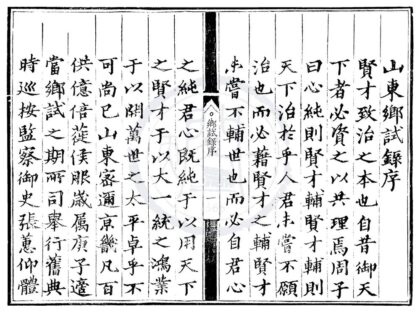 山東鄉試錄序
賢才致治之本也自昔御天
下者必資之以共理焉周子
曰心純則賢才輔賢才輔則
天下治於乎人君未嘗不願
治也而必藉賢才之輔賢才
未嘗不輔世也而必自君心
鄉試錄序
一
之純君心既純于以用天下
之賢才于以大一統之鴻業
于以開萬世之太平卓乎不
可尚已山東密邇京畿凡百
供億倍蓰歲属庚子適
當鄉試之期所司舉行舊典
時巡按監察御史張蕙仰體